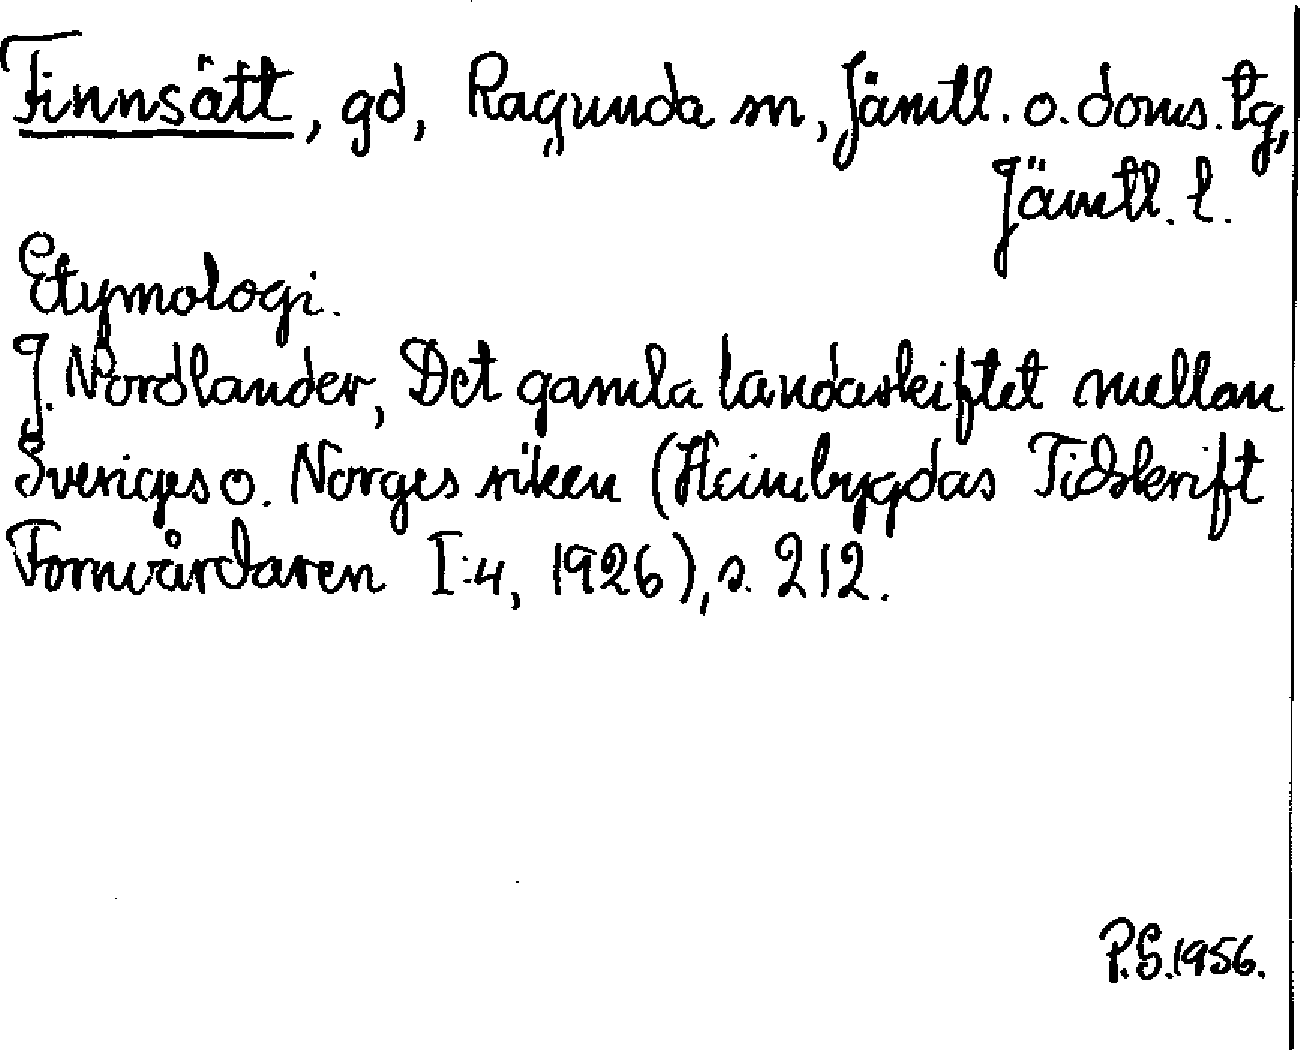 Finnsätt, gd, Ragunda sn, Jämtl. ö. doms. tg,
Jämtl. l.
Etymologi.
J. Nordlander, Det gamla landaskiftet mellan
Sveriges o. Norges riken (Heimbygdas Tidskrift
Fornvårdaren I:4, 1926), s. 212.
P.S. 1956.